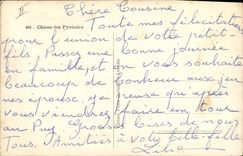 II
Chère Cousine
468 - Chiens des Pyrénées
Toutes mes félicitations
pour l'union de votre petit-
fils. Passez une bonne journée
en famille et on vous souhaite
beaucoup de bonheur aux jeu-
nes époux. Je serai heureuse qu'après
vous veniez faire un tour
au Puy. Grosses bises de nous
Tous. Amitiés à votre belle-fille